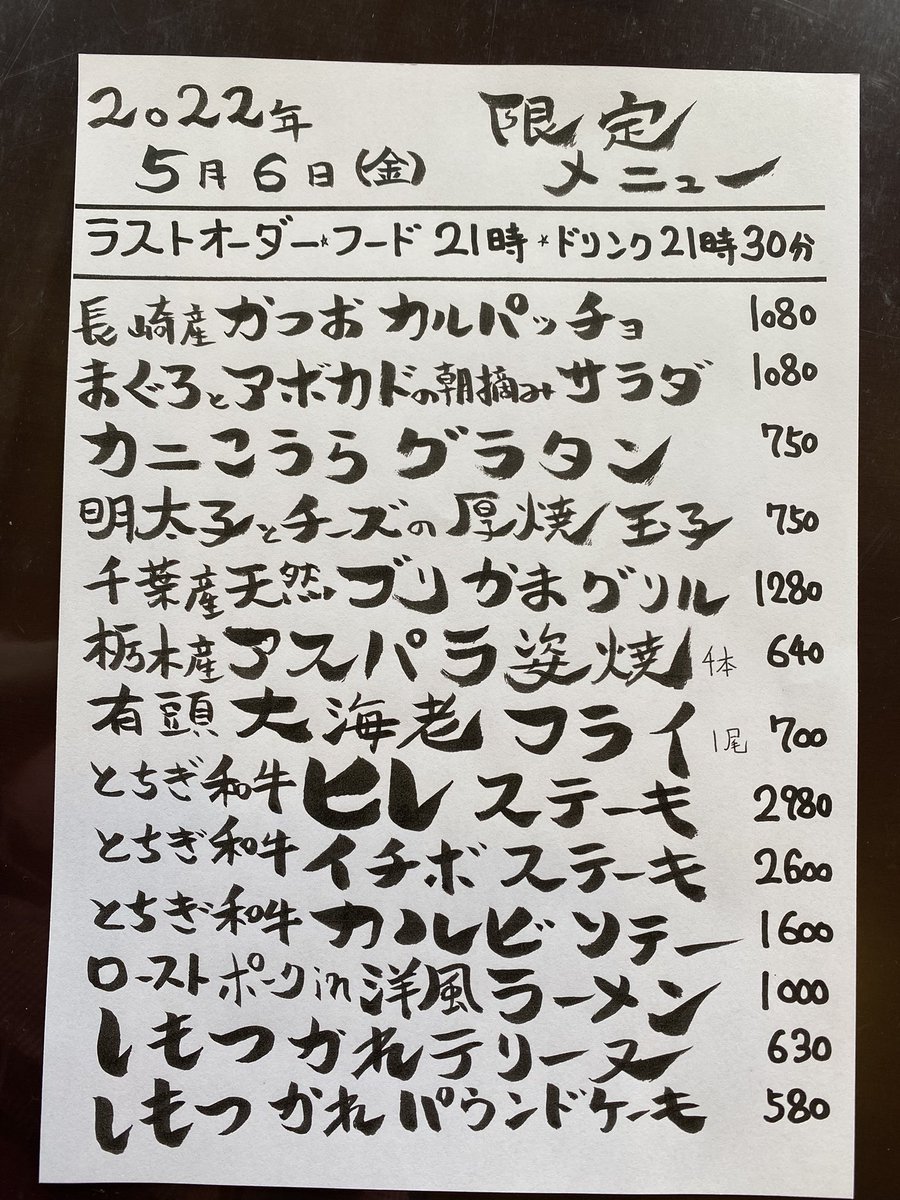 2022年 限定
5月6日(金) メニュー
ラストオーダー☆フード21時☆ドリンク21時30分
長崎産かつおカルパッチョ 1080
まぐろとアボカドの朝摘みサラダ 1080
カニこうらグラタン 750
明太子とチーズの厚焼玉子 750
千葉産天然ブリかまグリル 1280
栃木産アスパラ姿焼 4本 640
有頭大海老フライ 1尾 700
とちぎ和牛ヒレステーキ 2980
とちぎ和牛イチボステーキ 2600
とちぎ和牛カルビソテー 1600
ローストポークin洋風ラーメン 1000
しもつかれテリーヌ 630
しもつかれパウンドケーキ 580